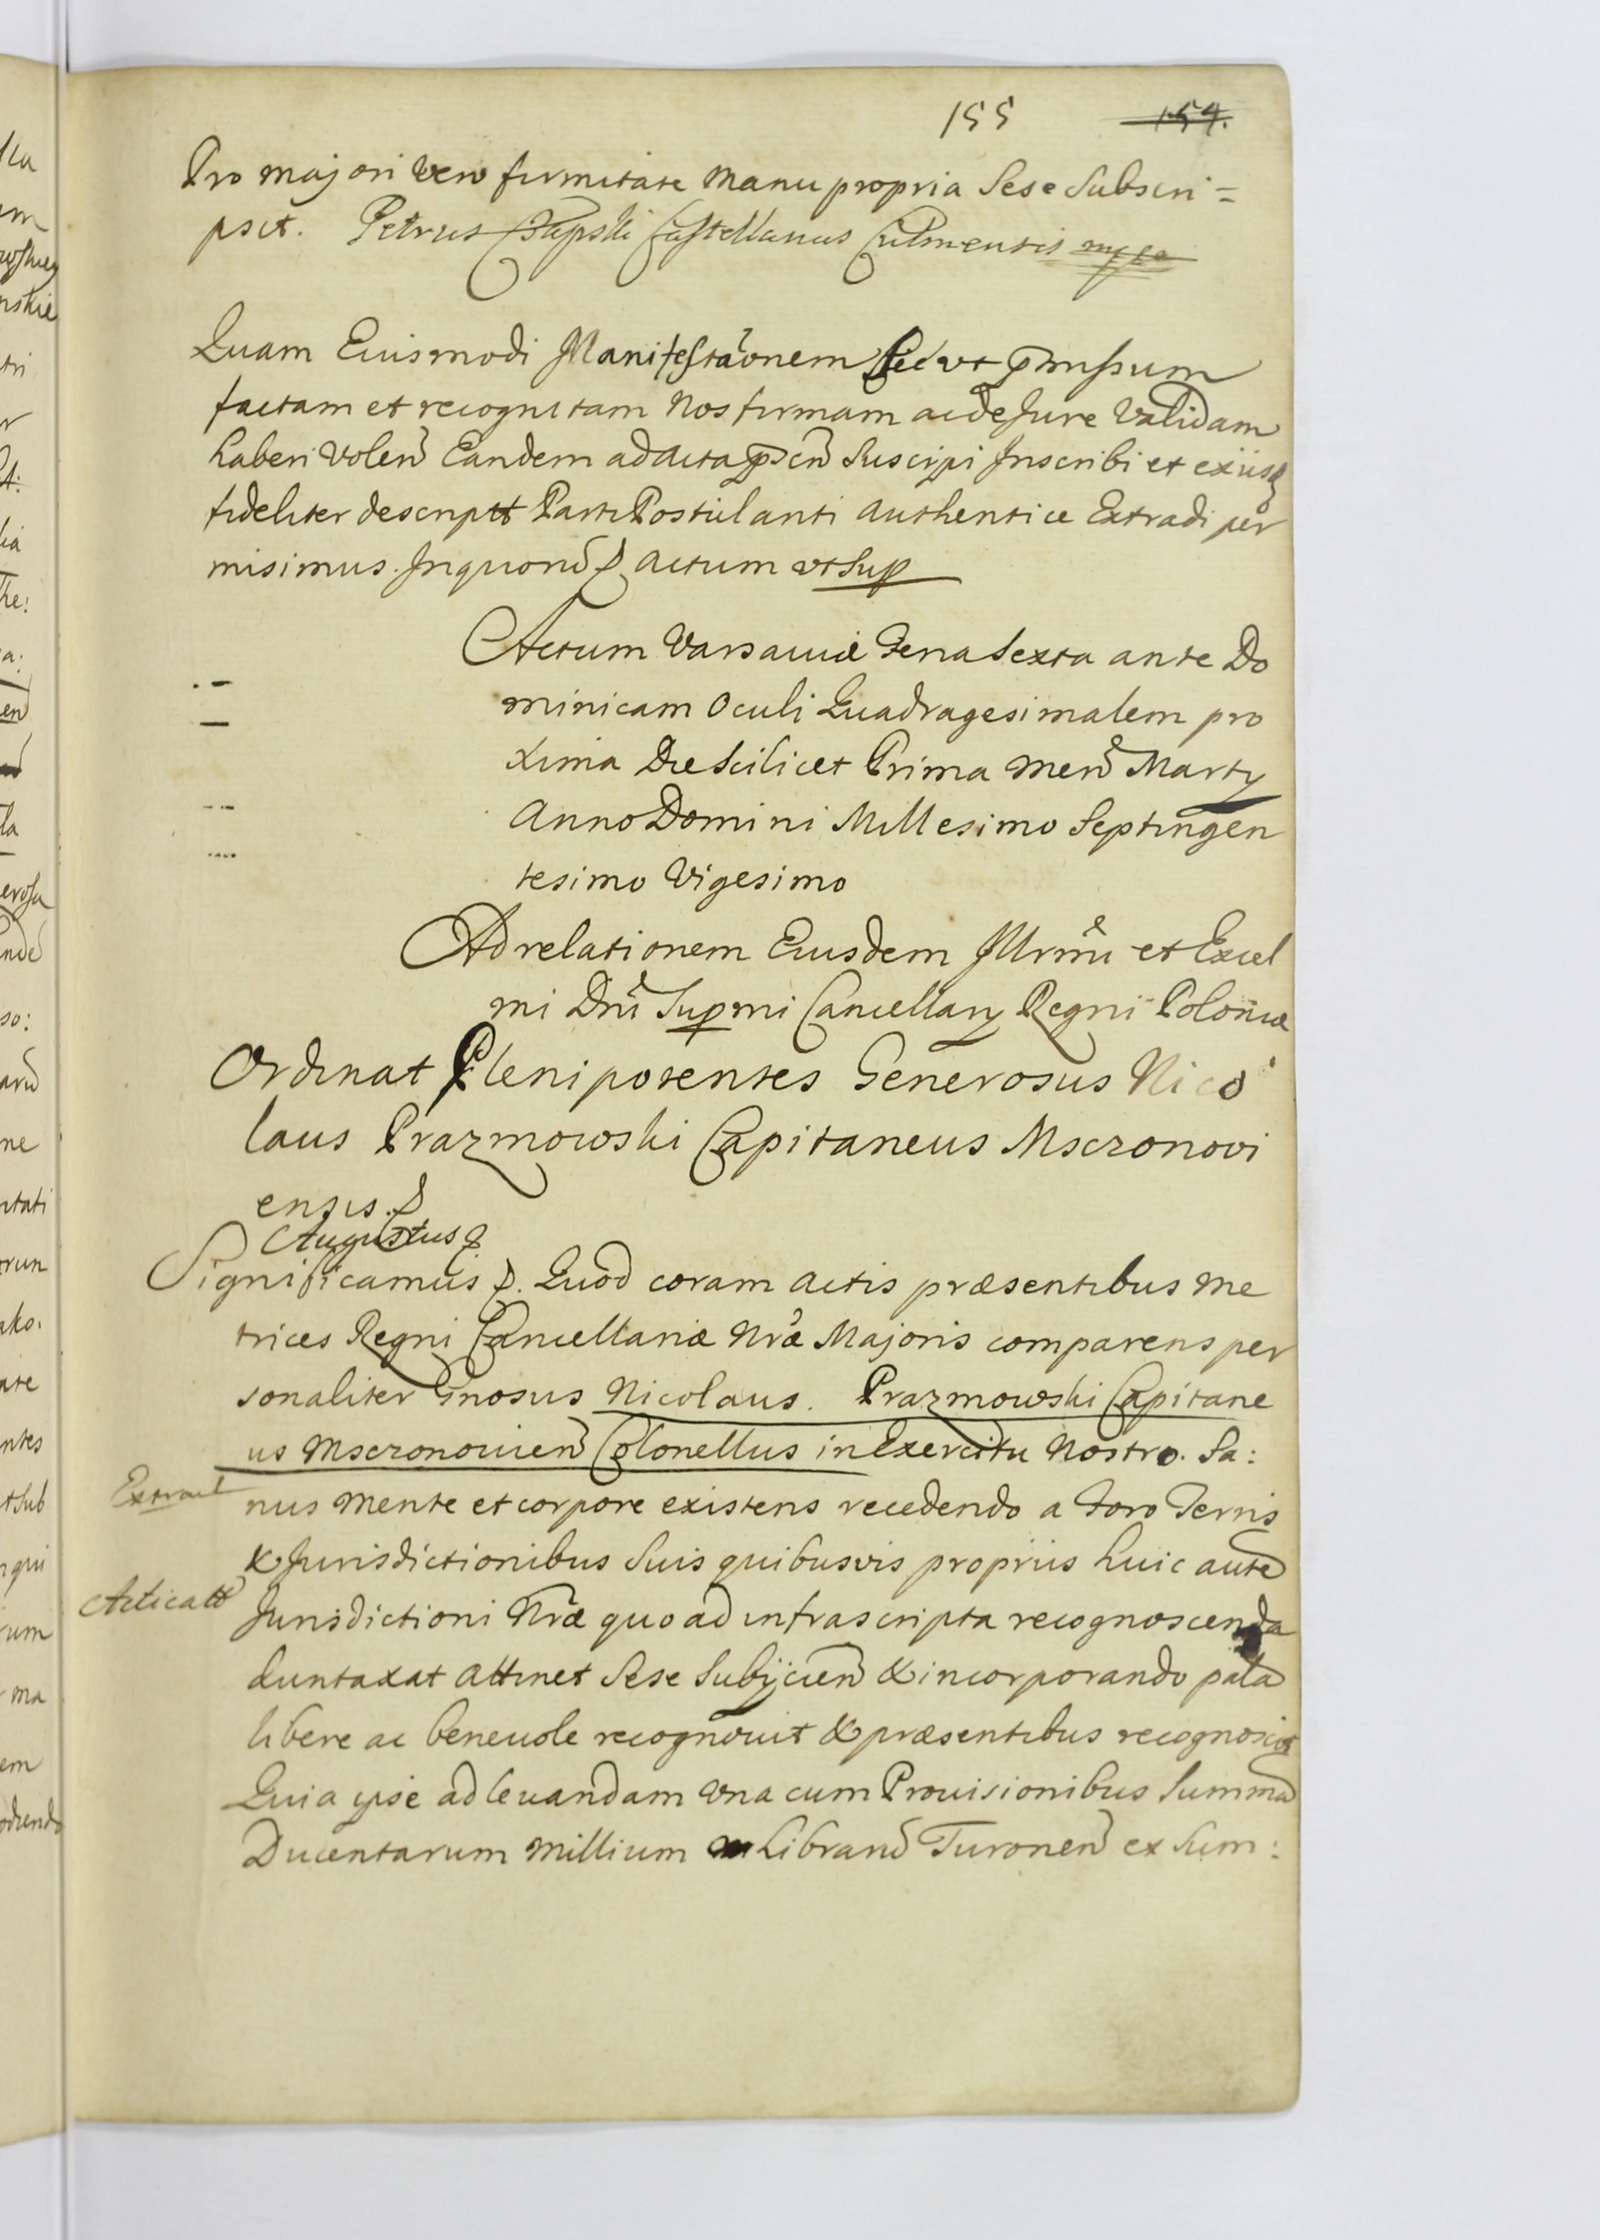 155 154.
Pro majori vero firmitate Manu propria Sese Subscri=
psit. Petrus Czapski Castellanus Culmensis mpp
Quam Eiusmodi Manifestãonem sic ut p̃missum
factam et recognitam Nos firmam ac de Jure Validam
haberi Voleñ Eandem ad Acta p̃señ Suscipi Inscribi et ex iisq
fideliter descriptt Parti Postulanti Authentice Extradi per
misimus. In quoru̅ Actum ut Sup
Actum Varsaviæ Feria Sexta ante Do
minicam Oculi Quadragesimalem pro
xima Die Scilicet Prima Meñ Martij
Anno Domini Millesimo Septingen
tesimo Vigesimo
Ad relationem Eiusdem Illrmi et Excel
mi Dñi Supmi Cancellarij Regni Poloniæ
Ordinat Plenipotentes Generosus Nico
laus Prazmowski Capitaneus Mscronovi
ensis.
Augustus
Significamus. Quod coram Actis præsentibus Me
trices Regni Cancellariæ Nræ Majoris comparens per
sonaliter Gnosus Nicolaus. Prazmowski Capitane
us Mscronovieñ Colonellus in Exercitu Nostro. Sa:
Extract nus Mente et corpore existens recedendo a Foro Terris
& Jurisdictionibus Suis quibusvis propriis huic aute̅
Acticatt Jurisdictioni Nræ quo ad infrascripta recognoscenda
duntaxat attinet Sese Subijcieñ & incorporando pala̅
libere ac benevole recognovit & præsentibus recognoscit
Quia ipse ad levandam una cum Provisionibus Summa̅
Ducentarum Millium Libraru̅ Turoneñ ex Sum: